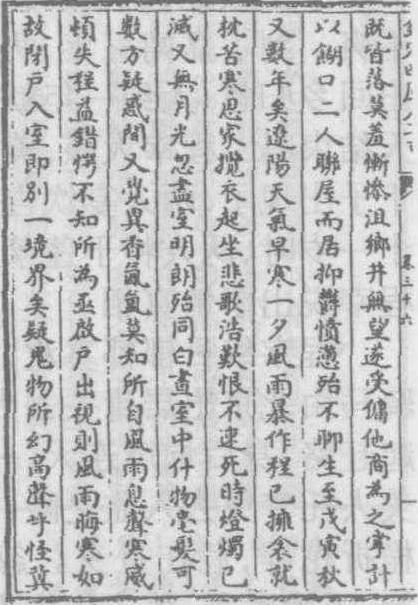 卷三十六
既皆落莫羞慚慘沮鄉井無望遂受傭他商為之掌計
以餬口二人聯屋而居抑鬱憤懣殆不聊生至戊寅秋
又數年矣遼陽天氣早寒一夕風雨暴作程已擁衾就
枕苦寒思家攬衣起坐悲歌浩歎恨不速死時燈燭已
滅又無月光忽盡室明朗殆同白晝室中什物毫髮可
數方疑惑間又覺異香氤氳莫知所自風雨息聲寒威
頓失程益錯愕不知所為亟啟戶出視則風雨晦寒如
故閉戶入室即別一境界矣疑鬼物所幻高聲呼怪冀